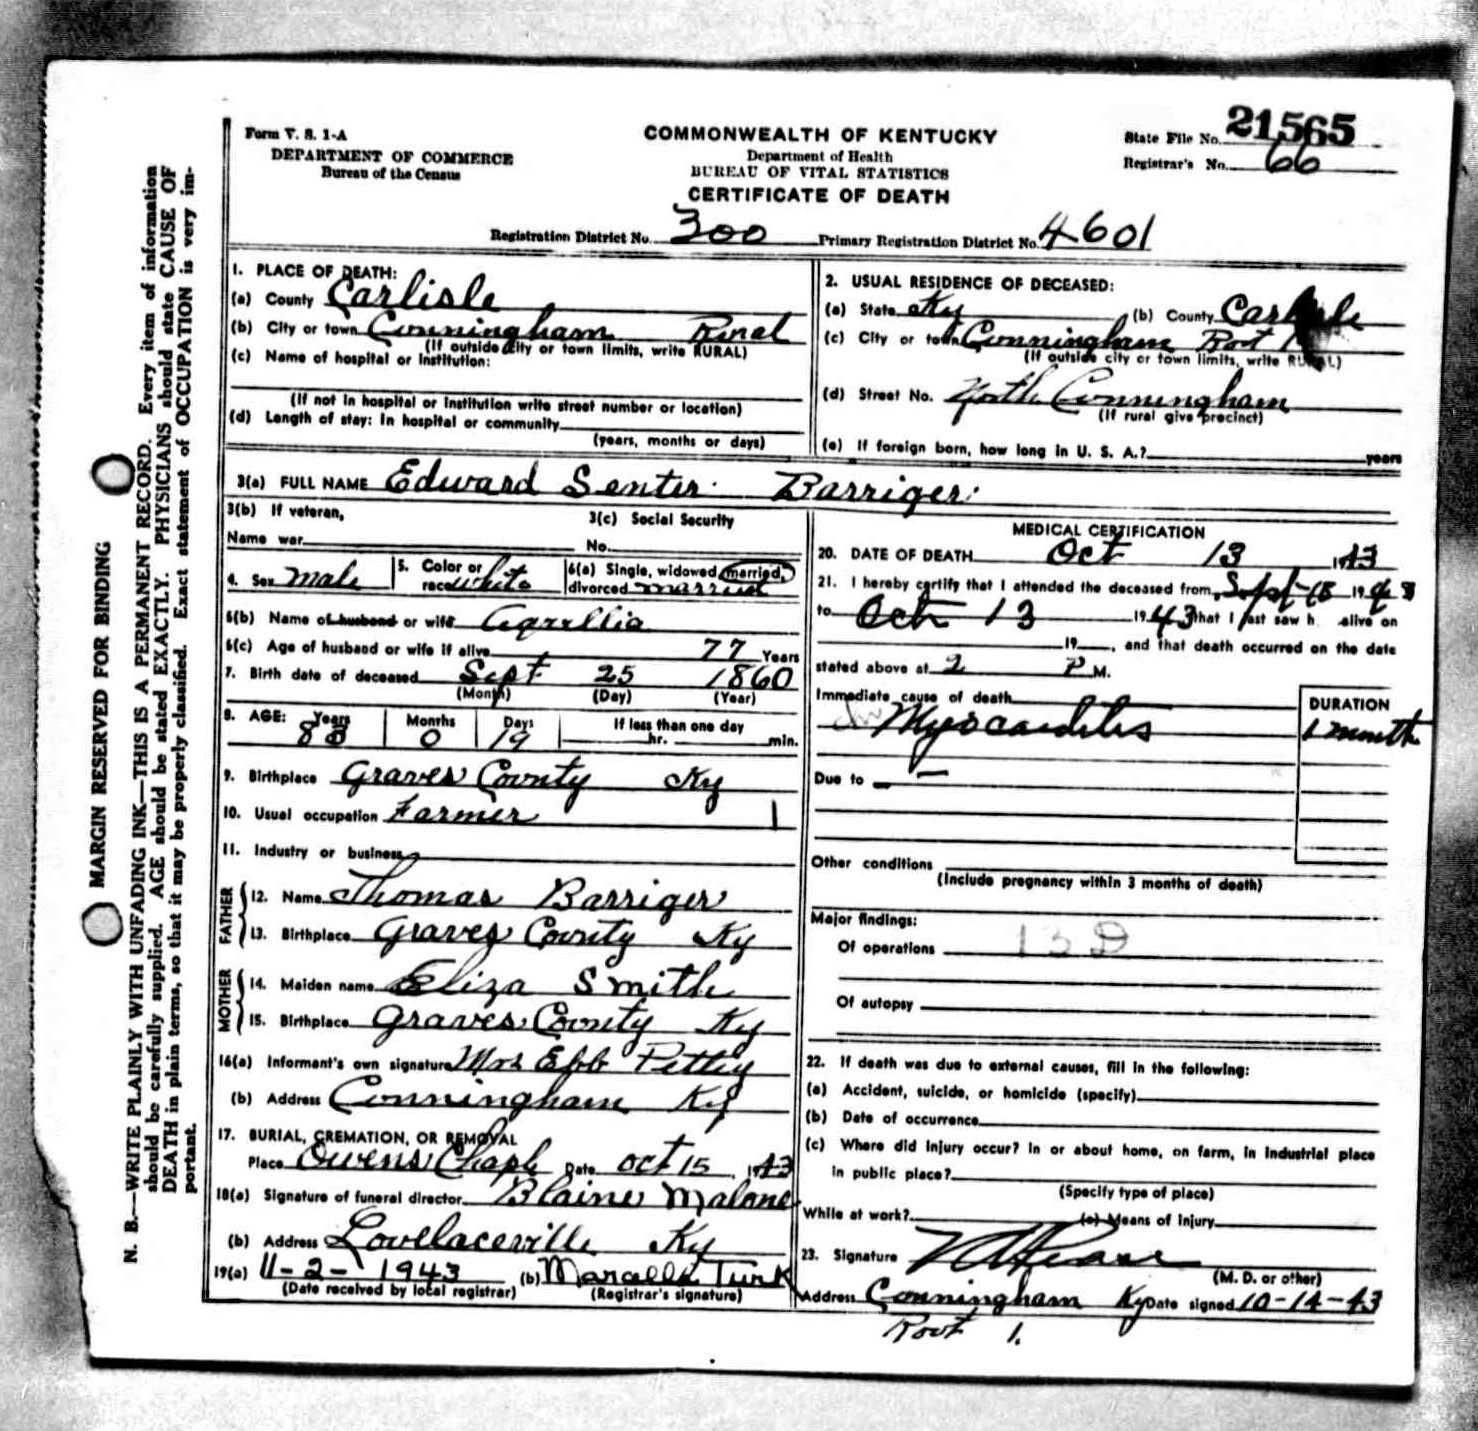 Form V. S. 1-A
DEPARTMENT OF COMMERCE
Bureau of the Census
COMMONWEALTH OF KENTUCKY
Department of Health
BUREAU OF VITAL STATISTICS
CERTIFICATE OF DEATH
State File No. 21565
Registrar's No. 66
Registration District No. 300 Primary Registration District No. 4601
1. PLACE OF DEATH:
(a) County Carlisle
(b) City or town Cunningham Rural
(If outside city or town limits, write RURAL)
(c) Name of hospital or institution:
(If not in hospital or institution write street number or location)
(d) Length of stay: In hospital or community
(years, months or days)
2. USUAL RESIDENCE OF DECEASED:
(a) State Ky (b) County Carlisle
(c) City or town Cunningham Rout 1
(If outside city or town limits, write RURAL)
(d) Street No. North Cunningham
(If rural give precinct)
(e) If foreign born, how long in U. S. A.? years
3(a) FULL NAME Edward Senter Barriger
3(b) If veteran,
Name war
3(c) Social Security
No.
4. Sex male
5. Color or
race white
6(a) Single, widowed, married,
divorced married
6(b) Name of husband or wife
6(c) Age of husband or wife if alive 77 Years
7. Birth date of deceased Sept 25 1860
(Month) (Day) (Year)
8. AGE: Years Months Days If less than one day
83 0 19 hr. min.
9. Birthplace Graves County Ky
10. Usual occupation Farmer 1
11. Industry or business
FATHER
12. Name Thomas Barriger
13. Birthplace Graves County Ky
MOTHER
14. Maiden name Eliza Smith
15. Birthplace Graves County Ky
16(a) Informant's own signature Mrs Ebb Pettey
(b) Address Cunningham Ky
17. BURIAL, CREMATION, OR REMOVAL
Place Owens Chapl Date Oct 15, 1943
18(a) Signature of funeral director Blaine Malone
(b) Address Lovelaceville Ky
19(a) 11-2-1943 (b) Turk
(Date received by local registrar) (Registrar's signature)
MEDICAL CERTIFICATION
20. DATE OF DEATH Oct 13 1943
21. I hereby certify that I attended the deceased from Sept 1943
to Oct 13 1943 that I last saw h alive on
19 , and that death occurred on the date
stated above at 2 P M.
Immediate cause of death
Myocarditis
DURATION
1 month
Due to —
Other conditions
(Include pregnancy within 3 months of death)
Major findings:
Of operations 13D
Of autopsy
22. If death was due to external causes, fill in the following:
(a) Accident, suicide, or homicide (specify)
(b) Date of occurrence
(c) Where did injury occur? In or about home, on farm, in industrial place
in public place?
(Specify type of place)
While at work? (e) Means of Injury
23. Signature
(M. D. or other)
Address Cunningham Ky Date signed 10-14-43
Rout 1.
MARGIN RESERVED FOR BINDING
N. B.—WRITE PLAINLY WITH UNFADING INK—THIS IS A PERMANENT RECORD. Every item of information
should be carefully supplied. AGE should be stated EXACTLY. PHYSICIANS should state CAUSE OF
DEATH in plain terms, so that it may be properly classified. Exact statement of OCCUPATION is very im-
portant.